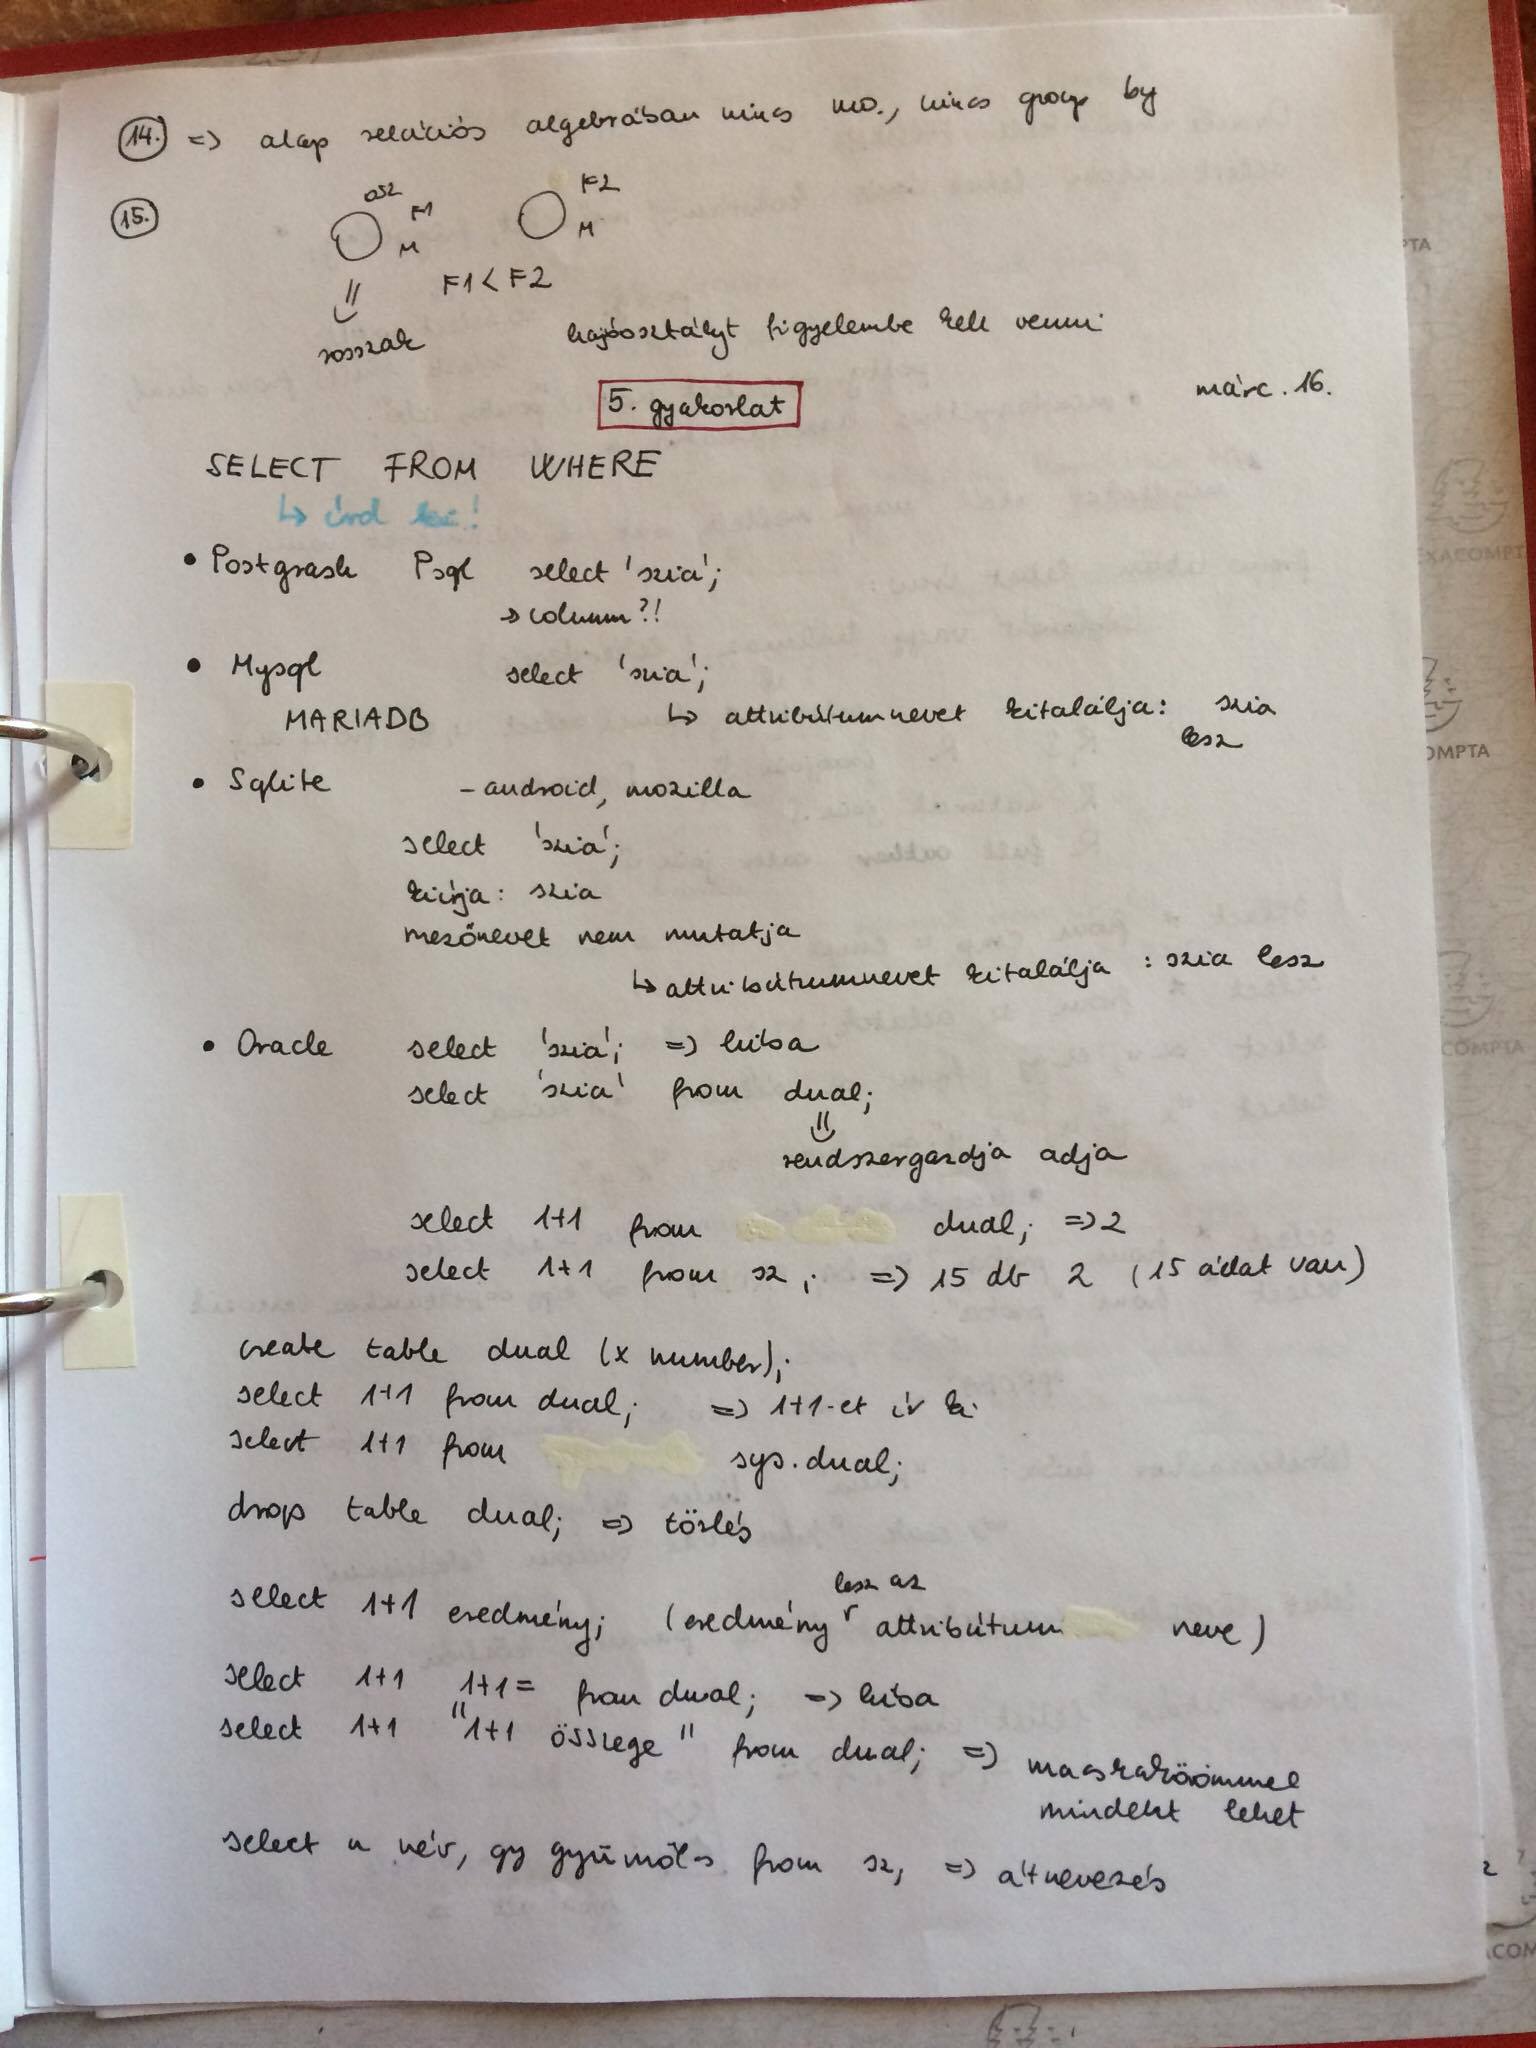 14. => alap relációs algebrában nincs mo., nincs group by
15.
osz F1 M
F2 M
F1 < F2
rosszak
hajóosztályt figyelembe kell venni
5. gyakorlat
márc. 16.
SELECT FROM WHERE
↳ írd ki!
• Postgrash Psql select 'szia';
→ column?!
• Mysql select 'szia';
MARIADB ↳ attribútumnevet kitalálja: szia
lesz
• Sqlite - android, mozilla
select 'szia';
kiírja: szia
mezőnevet nem mutatja
↳ attribútumnevet kitalálja : szia lesz
• Oracle select 'szia'; => hiba
select 'szia' from dual;
rendszergazdja adja
select 1+1 from dual; => 2
select 1+1 from sz; => 15 db 2 (15 adat van)
create table dual (x number);
select 1+1 from dual; => 1+1-et ír ki
select 1+1 from sys.dual;
drop table dual; => törlés
select 1+1 eredmény; (eredmény lesz az attribútum neve)
select 1+1 1+1= from dual; => hiba
select 1+1 "1+1 összege" from dual; => macskakörömmel
mindent lehet
select n név, gy gyümölcs from sz; => átnevezés
EXACOMPTA
COMPTA